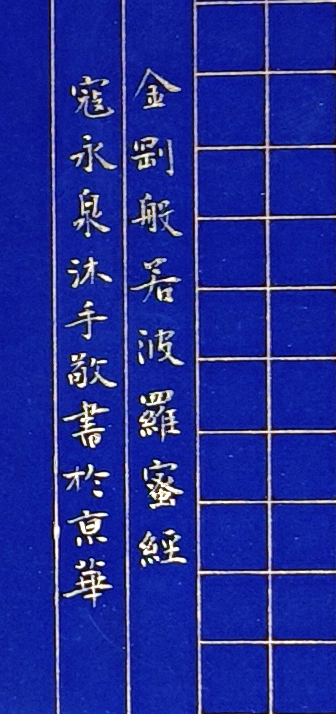 金剛般若波羅蜜經
寇永泉沐手敬書於京華